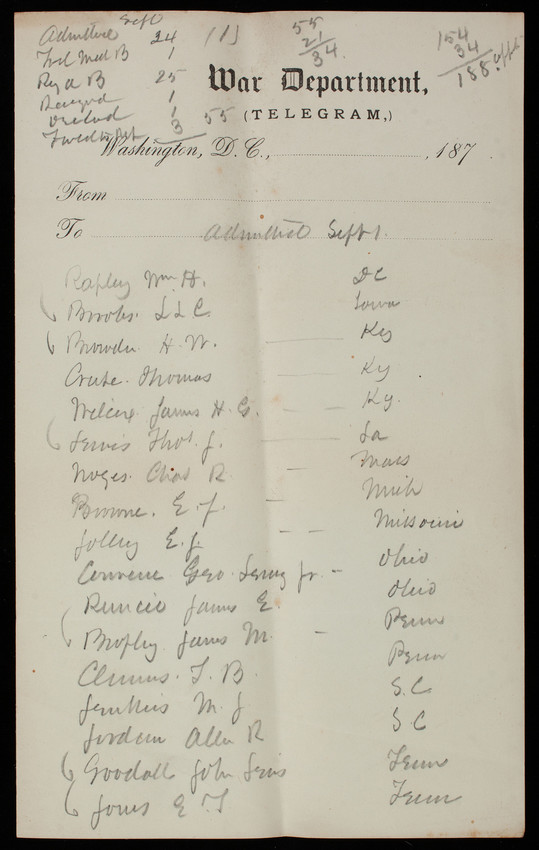 Sept
Admitted 24 (1) 55 154
Med B 1 21 34
Reg B 25 34. 188
Resigned 1
1
3 55
War Department,
(TELEGRAM,)
Washington, D.C., , 187
From
To Admitted Sept 1.
Rapley Wm H. DC
Brooks. L L C. Iowa
Browder H. W. Ky
Thomas Ky
James H. G. Ky.
Lewis Thos. J. La
Noyes. Chas R. Mass
Browne. E. J. Mich
Jolley E. J. Missouri
Converse Geo. Leroy Jr. - Ohio
Runcie James E. Ohio
Brophy James M. - Penn
Clemens. T. B. Penn
Jenkins M. J. S. C.
Jordan Allen R S C
Goodall John Lewis Tenn
Jones E T Tenn